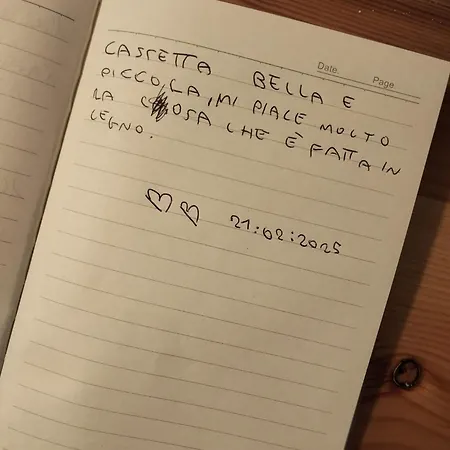 Date. Page
CASETTA BELLA E
PICCOLA, MI PIACE MOLTO
LA COSA CHE È FATTA IN
LEGNO.
21:02:2025